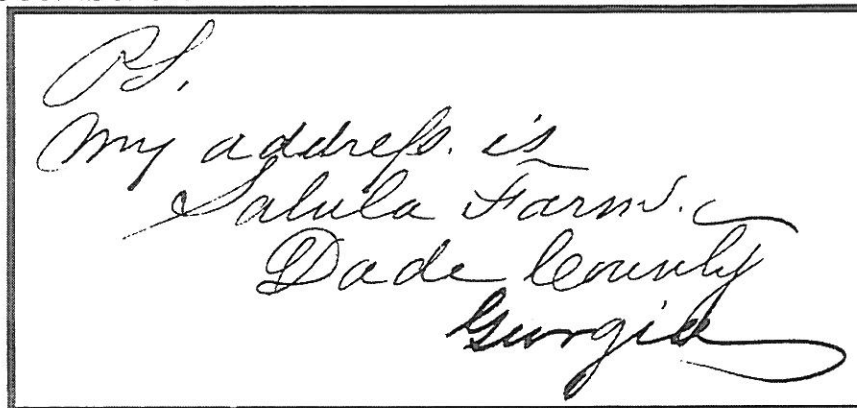 PS.
My addreſs. is
Farm.
Dade County
Georgia